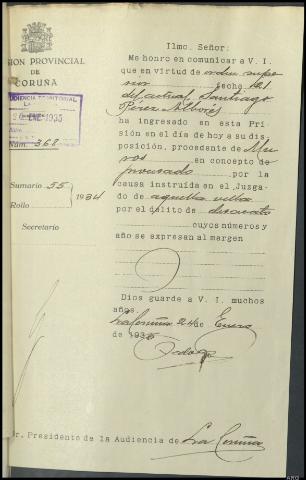 SION PROVINCIAL
DE
CORUÑA
AUDIENCIA TERRITORIAL
LA
26 ENE 1935
Núm. 368
Sumario 55
Rollo
1934
Secretario
Ilmo. Señor:
Me honro en comunicar a V. I.
que en virtud de orden supe-
rior fecha 21
del actual, Santiago
Pérez Albores
ha ingresado en esta Pri-
sión en el día de hoy a su dis-
posición, procedente de Mu-
ros en concepto de
procesado por la
causa instruida en el Juzga-
do de aquella villa
por el delito de desacato
cuyos números y
año se expresan al margen
Dios guarde a V. I. muchos
años.
La Coruña 24 de Enero
de 1935
Sr. Presidente de la Audiencia de La Coruña